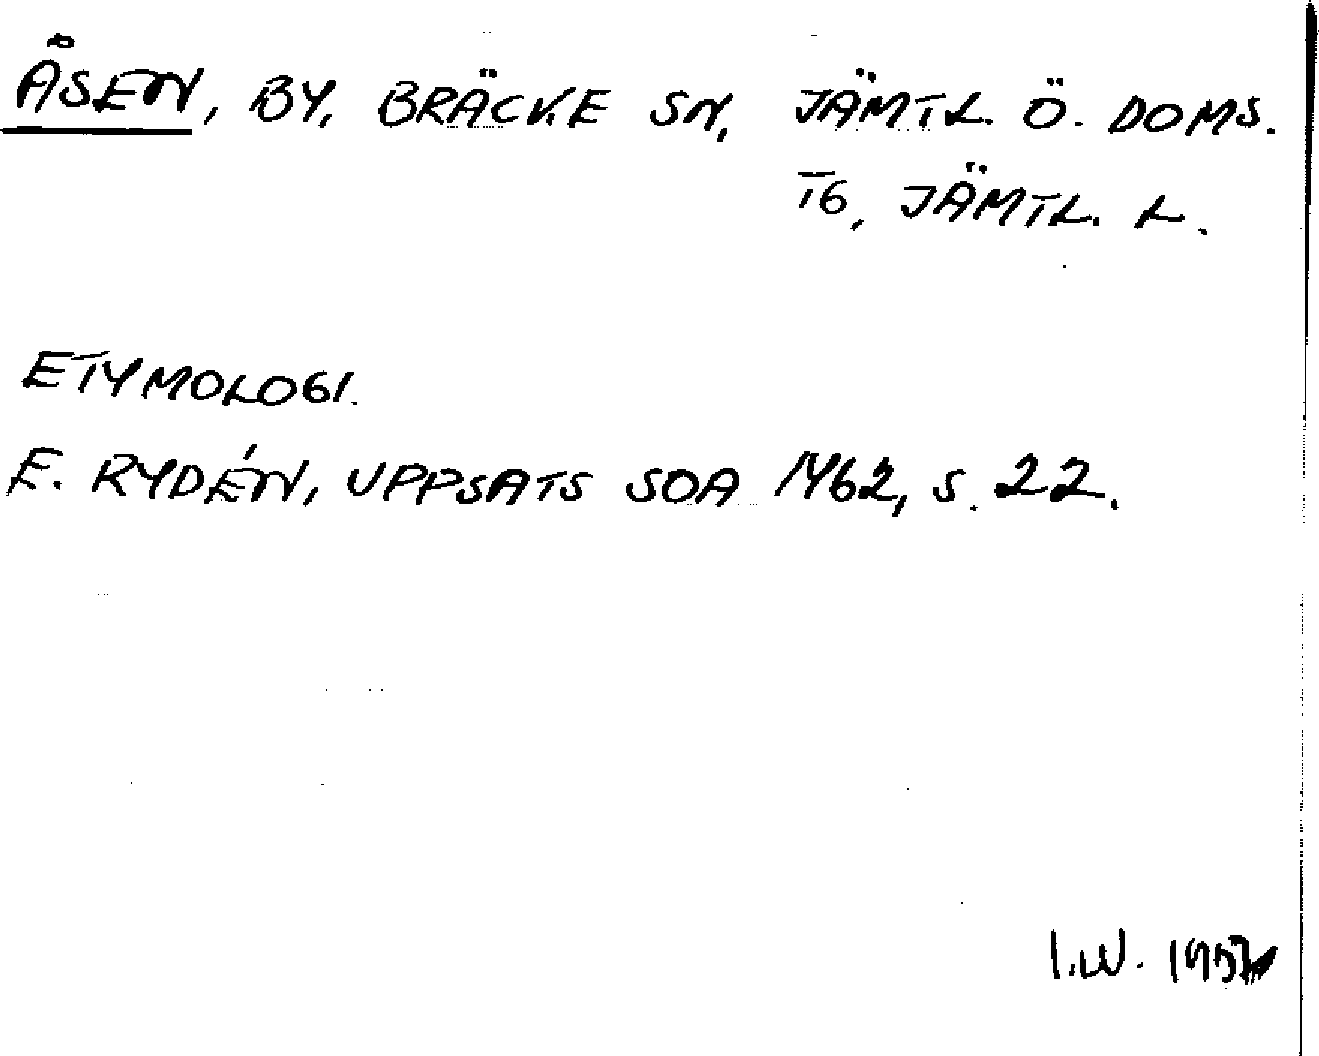 ÅSEN, BY, BRÄCKE SN, JÄMTL. Ö. DOMS.
TG, JÄMTL. L.
ETYMOLOGI.
E. RYDÉN, UPPSATS SOA 1462, S. 22.
I.W.